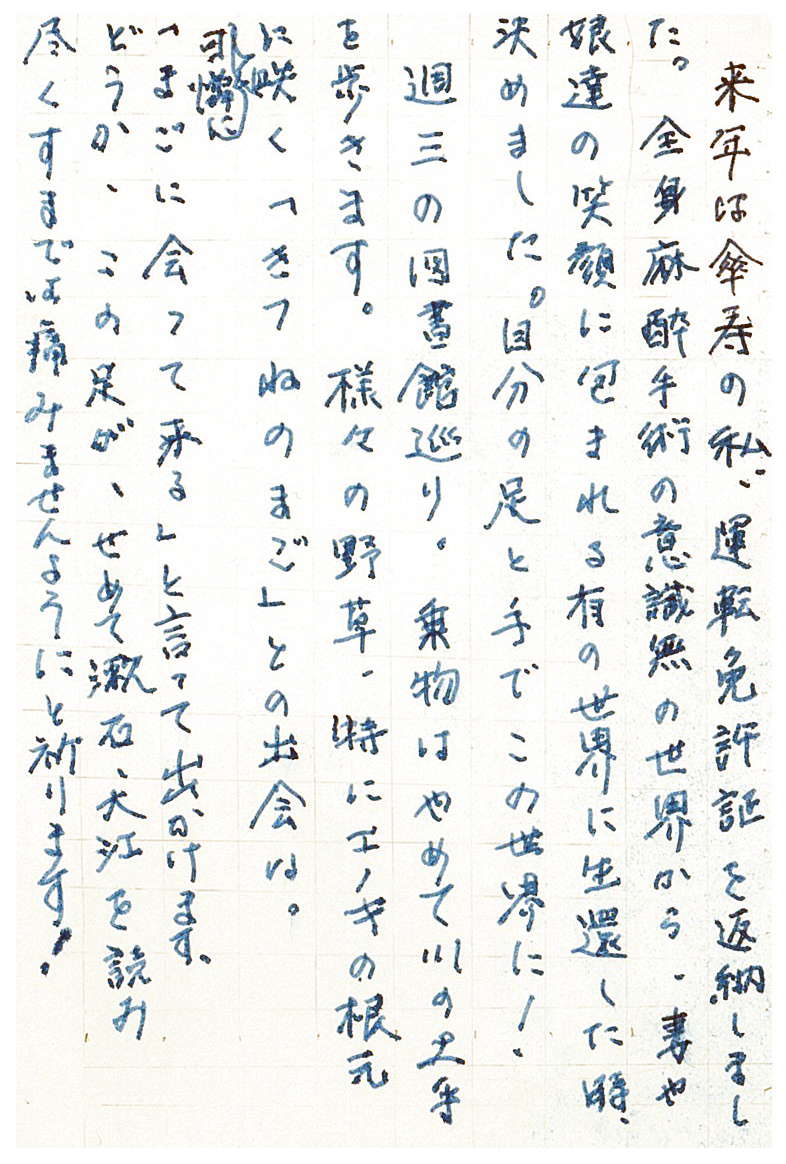 来年は傘寿の私、運転免許証を返納しまし
た。全身麻酔手術の意識無の世界から、妻や
娘達の笑顔に包まれる有の世界に生還した時、
決めました。自分の足と手でこの世界に!
週三の図書館巡り。乗物はやめて川の土手
を歩きます。様々の野草、特にエノキの根元
に咲く「きつねのまご」との出会は。
可憐に
「まごに会って来る」と言って出かけます。
どうか、この足が、せめて漱石、大江を読み
尽くすまでは痛みませんようにと祈ります!